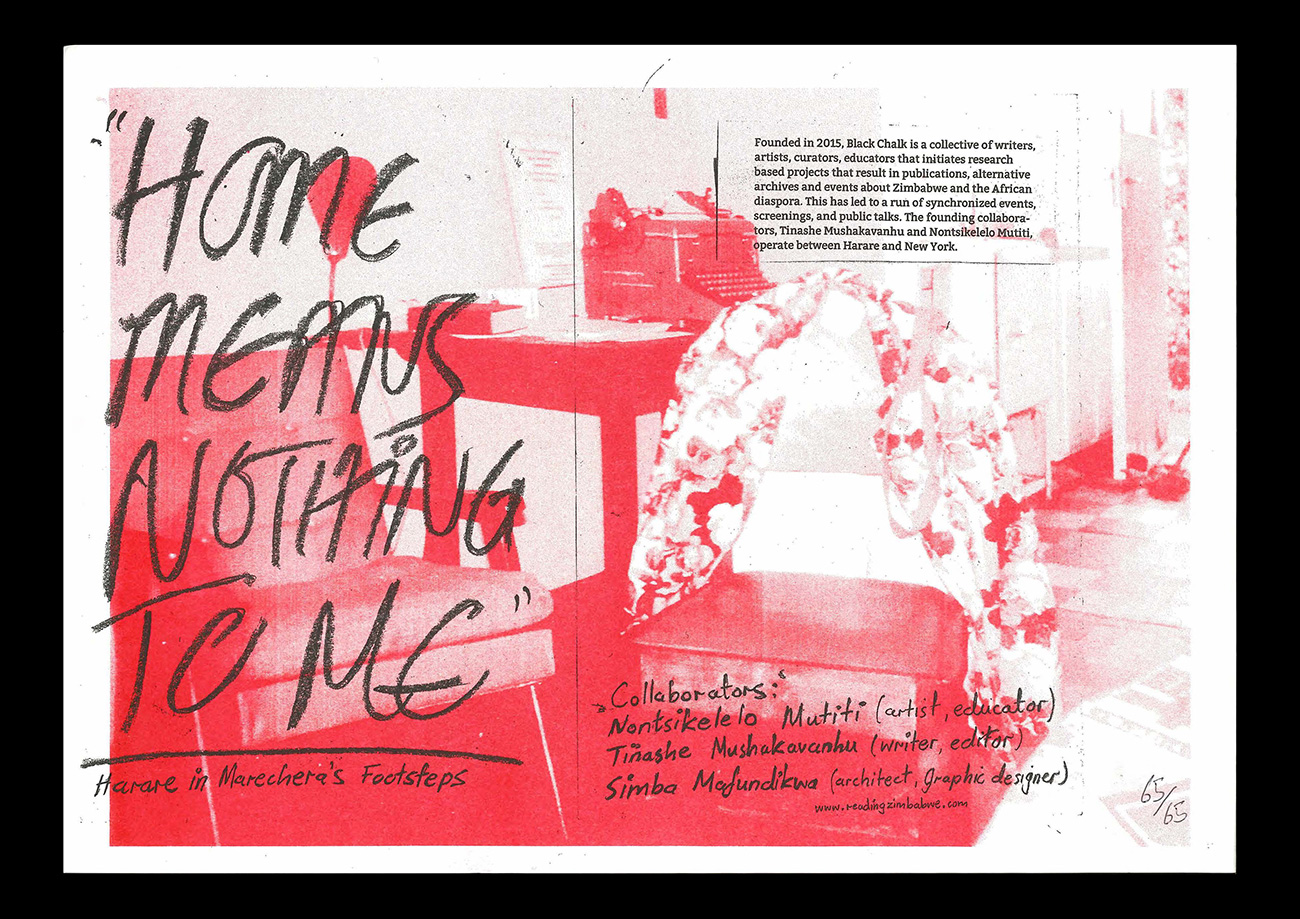 "HOME
MEANS
NOTHING
TO ME"
Harare in Marechera's Footsteps
Founded in 2015, Black Chalk is a collective of writers,
artists, curators, educators that initiates research
based projects that result in publications, alternative
archives and events about Zimbabwe and the African
diaspora. This has led to a run of synchronized events,
screenings, and public talks. The founding collabora-
tors, Tinashe Mushakavanhu and Nontsikelelo Mutiti,
operate between Harare and New York.
Collaborators:
Nontsikelelo Mutiti (artist, educator)
Tinashe Mushakavanhu (writer, editor)
Simba Mafundikwa (architect, graphic designer)
www.readingzimbabwe.com
65/65